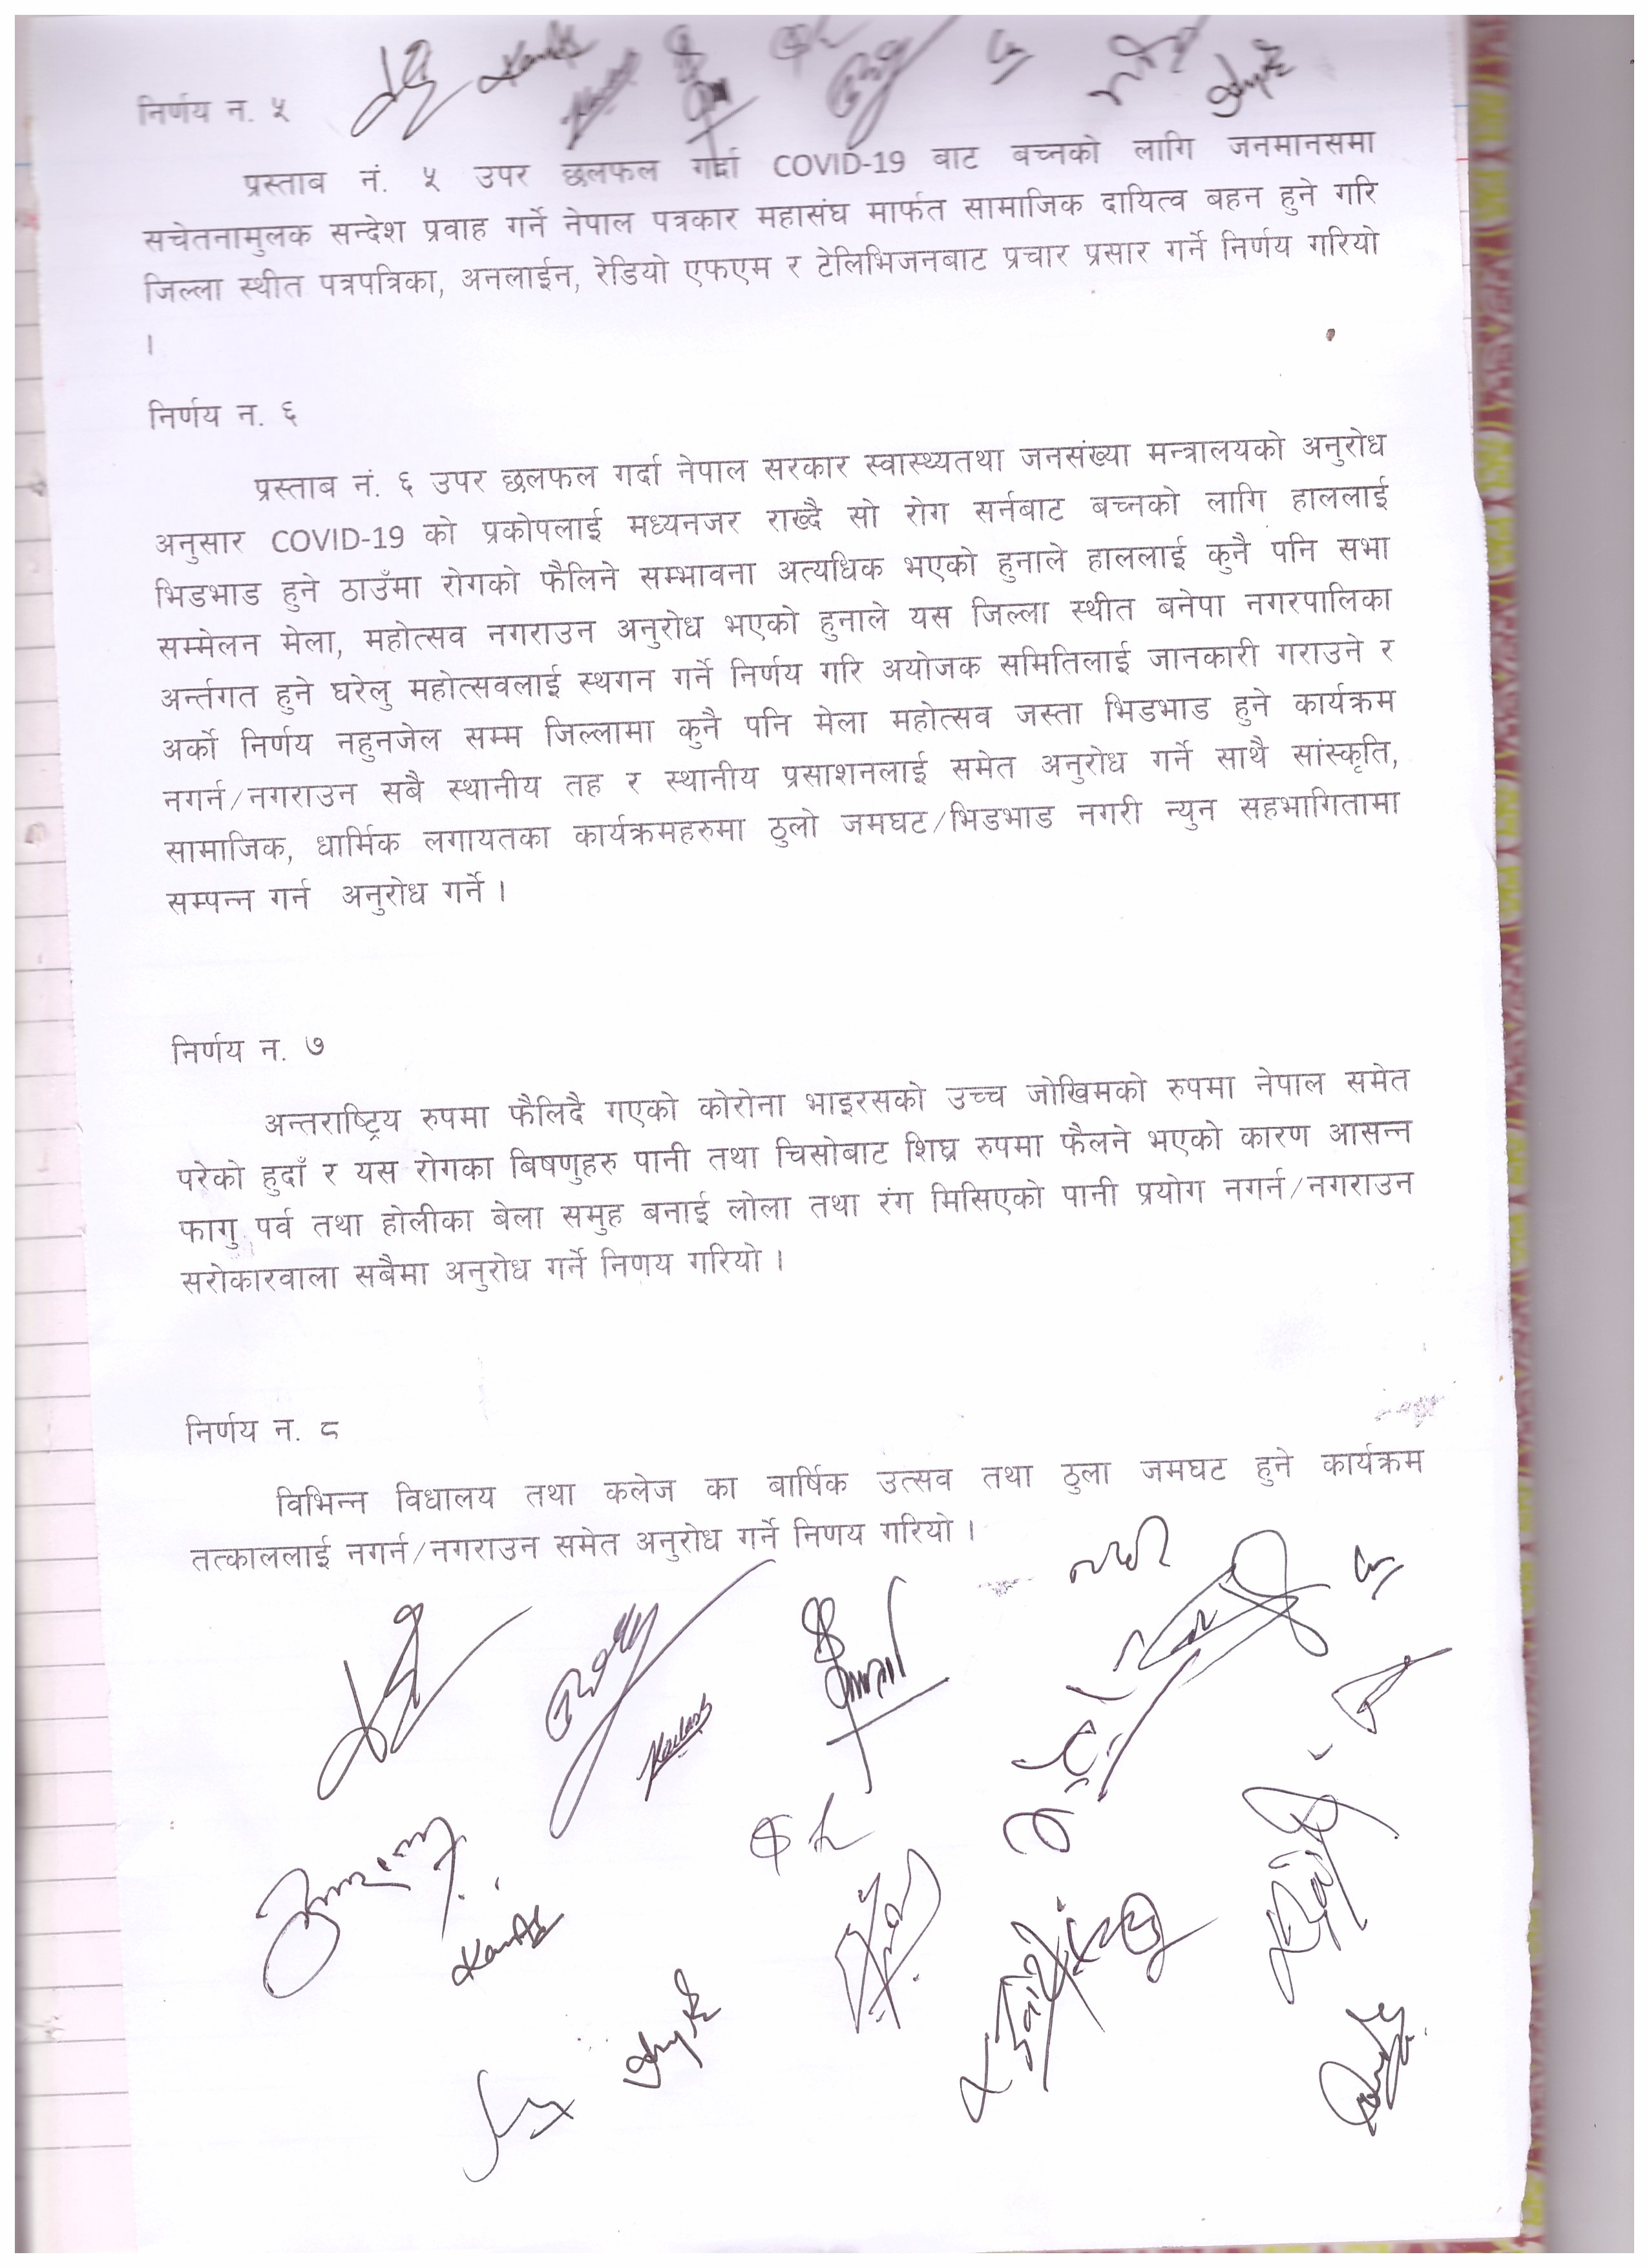 निर्णय न. ५
प्रस्ताब नं. ५ उपर छलफल गर्दा COVID-19 बाट बच्नको लागि जनमानसमा
सचेतनामुलक सन्देश प्रवाह गर्ने नेपाल पत्रकार महासंघ मार्फत सामाजिक दायित्व बहन हुने गरि
जिल्ला स्थीत पत्रपत्रिका, अनलाईन, रेडियो एफएम र टेलिभिजनबाट प्रचार प्रसार गर्ने निर्णय गरियो
।
निर्णय न. ६
प्रस्ताब नं. ६ उपर छलफल गर्दा नेपाल सरकार स्वास्थ्यतथा जनसंख्या मन्त्रालयको अनुरोध
अनुसार COVID-19 को प्रकोपलाई मध्यनजर राख्दै सो रोग सर्नबाट बच्नको लागि हाललाई
भिडभाड हुने ठाउँमा रोगको फैलिने सम्भावना अत्यधिक भएको हुनाले हाललाई कुनै पनि सभा
सम्मेलन मेला, महोत्सव नगराउन अनुरोध भएको हुनाले यस जिल्ला स्थीत बनेपा नगरपालिका
अर्न्तगत हुने घरेलु महोत्सवलाई स्थगन गर्ने निर्णय गरि अयोजक समितिलाई जानकारी गराउने र
अर्को निर्णय नहुनजेल सम्म जिल्लामा कुनै पनि मेला महोत्सव जस्ता भिडभाड हुने कार्यक्रम
नगर्न/नगराउन सबै स्थानीय तह र स्थानीय प्रसाशनलाई समेत अनुरोध गर्ने साथै सांस्कृति,
सामाजिक, धार्मिक लगायतका कार्यक्रमहरुमा ठुलो जमघट/भिडभाड नगरी न्युन सहभागितामा
सम्पन्न गर्न अनुरोध गर्ने ।
निर्णय न. ७
अन्तराष्ट्रिय रुपमा फैलिदै गएको कोरोना भाइरसको उच्च जोखिमको रुपमा नेपाल समेत
परेको हुदाँ र यस रोगका बिषणुहरु पानी तथा चिसोबाट शिघ्र रुपमा फैलने भएको कारण आसन्न
फागु पर्व तथा होलीका बेला समुह बनाई लोला तथा रंग मिसिएको पानी प्रयोग नगर्न/नगराउन
सरोकारवाला सबैमा अनुरोध गर्ने निणय गरियो ।
निर्णय न. ८
विभिन्न विधालय तथा कलेज का बार्षिक उत्सव तथा ठुला जमघट हुने कार्यक्रम
तत्काललाई नगर्न/नगराउन समेत अनुरोध गर्ने निणय गरियो ।